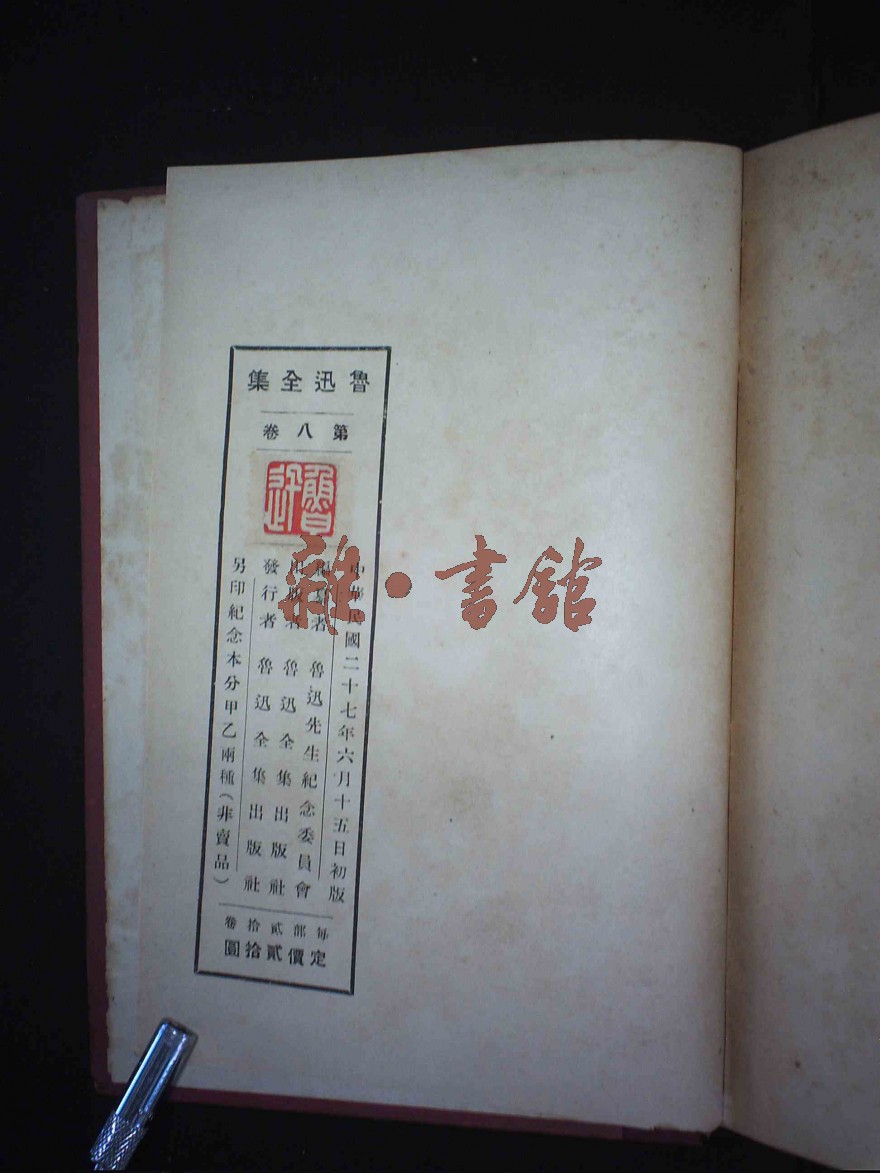 魯迅全集
第八卷
魯迅
中華民國二十七年六月十五日初版
編纂者 魯迅先生紀念委員會
出版者 魯迅全集出版社
發行者 魯迅全集出版社
另印紀念本分甲乙兩種（非賣品）
每部貳拾卷
定價貳拾圓
雜·書館